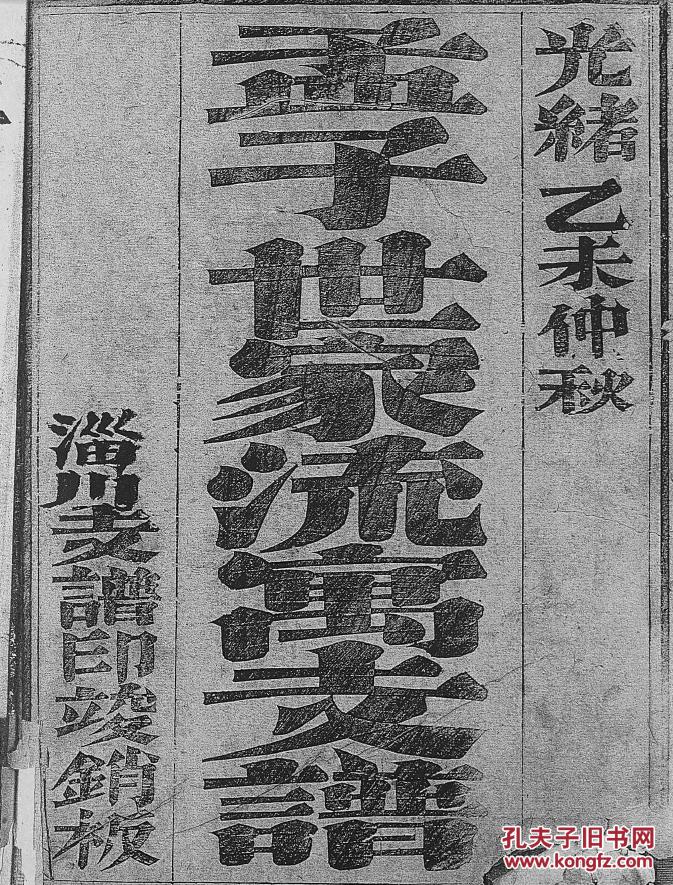 光緒乙未仲秋
孟子世家流寓支譜
淄川支譜印竣銷板
孔夫子旧书网
www.kongfz.com